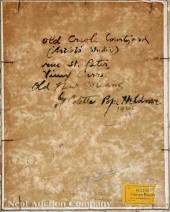 Old Creole Courtyard
(Artist's Studio)
rue St. Peter
Vieux Carre
Old New Orleans
by Colette Pope Heldner
Neal Auction Company